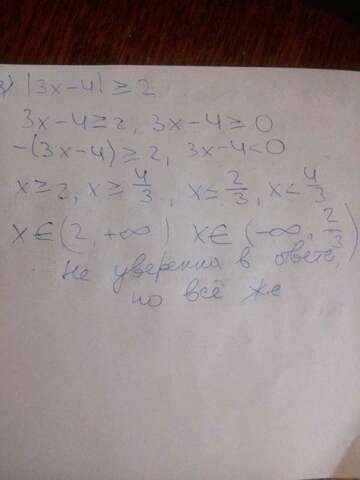 3) |3x-4| ≥ 2
3x-4 ≥ 2, 3x-4 ≥ 0
-(3x-4) ≥ 2, 3x-4 < 0
x ≥ 2, x ≥ 4/3, x ≤ 2/3, x < 4/3
x ∈ (2, +∞) x ∈ (-∞, 2/3)
Не уверенна в ответе,
но всё же